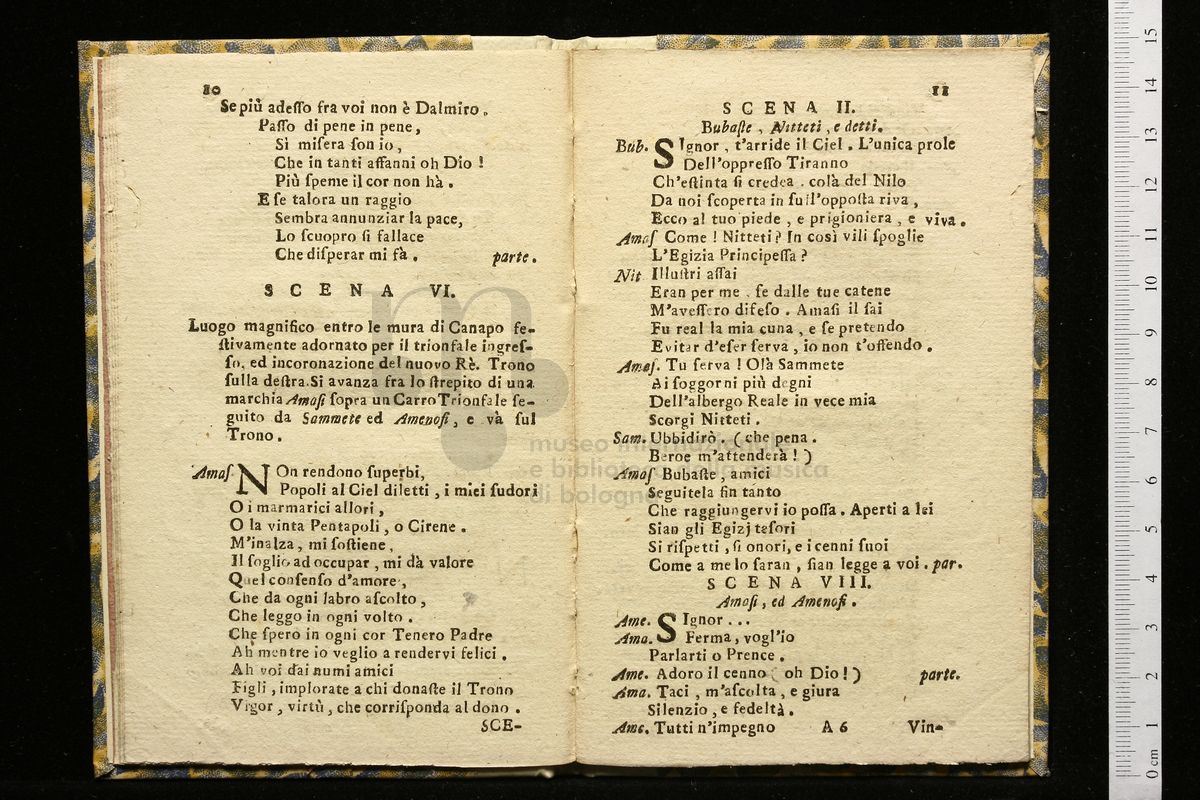 10
Se più adeſſo fra voi non è Dalmiro.
Paſſo di pene in pene,
Sì miſera ſon io,
Che in tanti affanni oh Dio!
Più ſpeme il cor non hà.
E ſe talora un raggio
Sembra annunziar la pace,
Lo ſcuopro ſi fallace
Che diſperar mi fà. parte.
SCENA VI.
Luogo magnifico entro le mura di Canapo fe-
ſtivamente adornato per il trionfale ingreſ-
ſo, ed incoronazione del nuovo Rè. Trono
ſulla deſtra. Si avanza fra lo ſtrepito di una
marchia Amaſi ſopra un Carro Trionfale ſe-
guito da Sammete ed Amenoſi, e và ſul
Trono.
Amaſ. NOn rendono ſuperbi,
Popoli al Ciel diletti, i miei ſudori
O i marmarici allori,
O la vinta Pentapoli, o Cirene.
M'inalza, mi ſoſtiene,
Il ſoglio ad occupar, mi dà valore
Quel conſenſo d'amore,
Che da ogni labro aſcolto,
Che leggo in ogni volto.
Che ſpero in ogni cor Tenero Padre
Ah mentre io veglio a rendervi felici.
Ah voi dai numi amici
Figli, implorate a chi donaſte il Trono
Vigor, virtù, che corriſponda al dono.
SCE-
11
SCENA II.
Bubaſte, Nitteti, e detti.
Bub. SIgnor, t'arride il Ciel. L'unica prole
Dell'oppreſſo Tiranno
Ch'eſtinta ſi credea. colà del Nilo
Da noi ſcoperta in ſull'oppoſta riva,
Ecco al tuo piede, e prigioniera, e viva.
Amaſ Come! Nitteti? In così vili ſpoglie
L'Egizia Principeſſa?
Nit Illuſtri aſſai
Eran per me, ſe dalle tue catene
M'aveſſero difeſo. Amaſi il ſai
Fu real la mia cuna, e ſe pretendo
Evitar d'eſer ſerva, io non t'offendo.
Amaſ. Tu ſerva! Olà Sammete
Ai ſoggorni più degni
Dell'albergo Reale in vece mia
Scorgi Nitteti.
Sam. Ubbidirò. (che pena.
Beroe m'attenderà!)
Amaſ Bubaſte, amici
Seguitela fin tanto
Che raggiungervi io poſſa. Aperti a lei
Sian gli Egizj teſori
Si riſpetti, ſi onori, e i cenni ſuoi
Come a me lo ſaran, ſian legge a voi. par.
SCENA VIII.
Amaſi, ed Amenoſi.
Ame. SIgnor...
Ama. Ferma, vogl'io
Parlarti o Prence.
Ame. Adoro il cenno (oh Dio!) parte.
Ama. Taci, m'aſcolta, e giura
Silenzio, e fedeltà.
Ame. Tutti n'impegno A 6 Vin-
museo internazionale
e biblioteca della musica
di bologna
0 cm 1 2 3 4 5 6 7 8 9 10 11 12 13 14 15